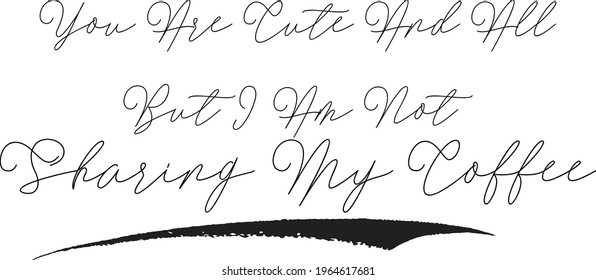 You Are Cute And All
But I Am Not
Sharing My Coffee
shutterstock.com · 1964617681